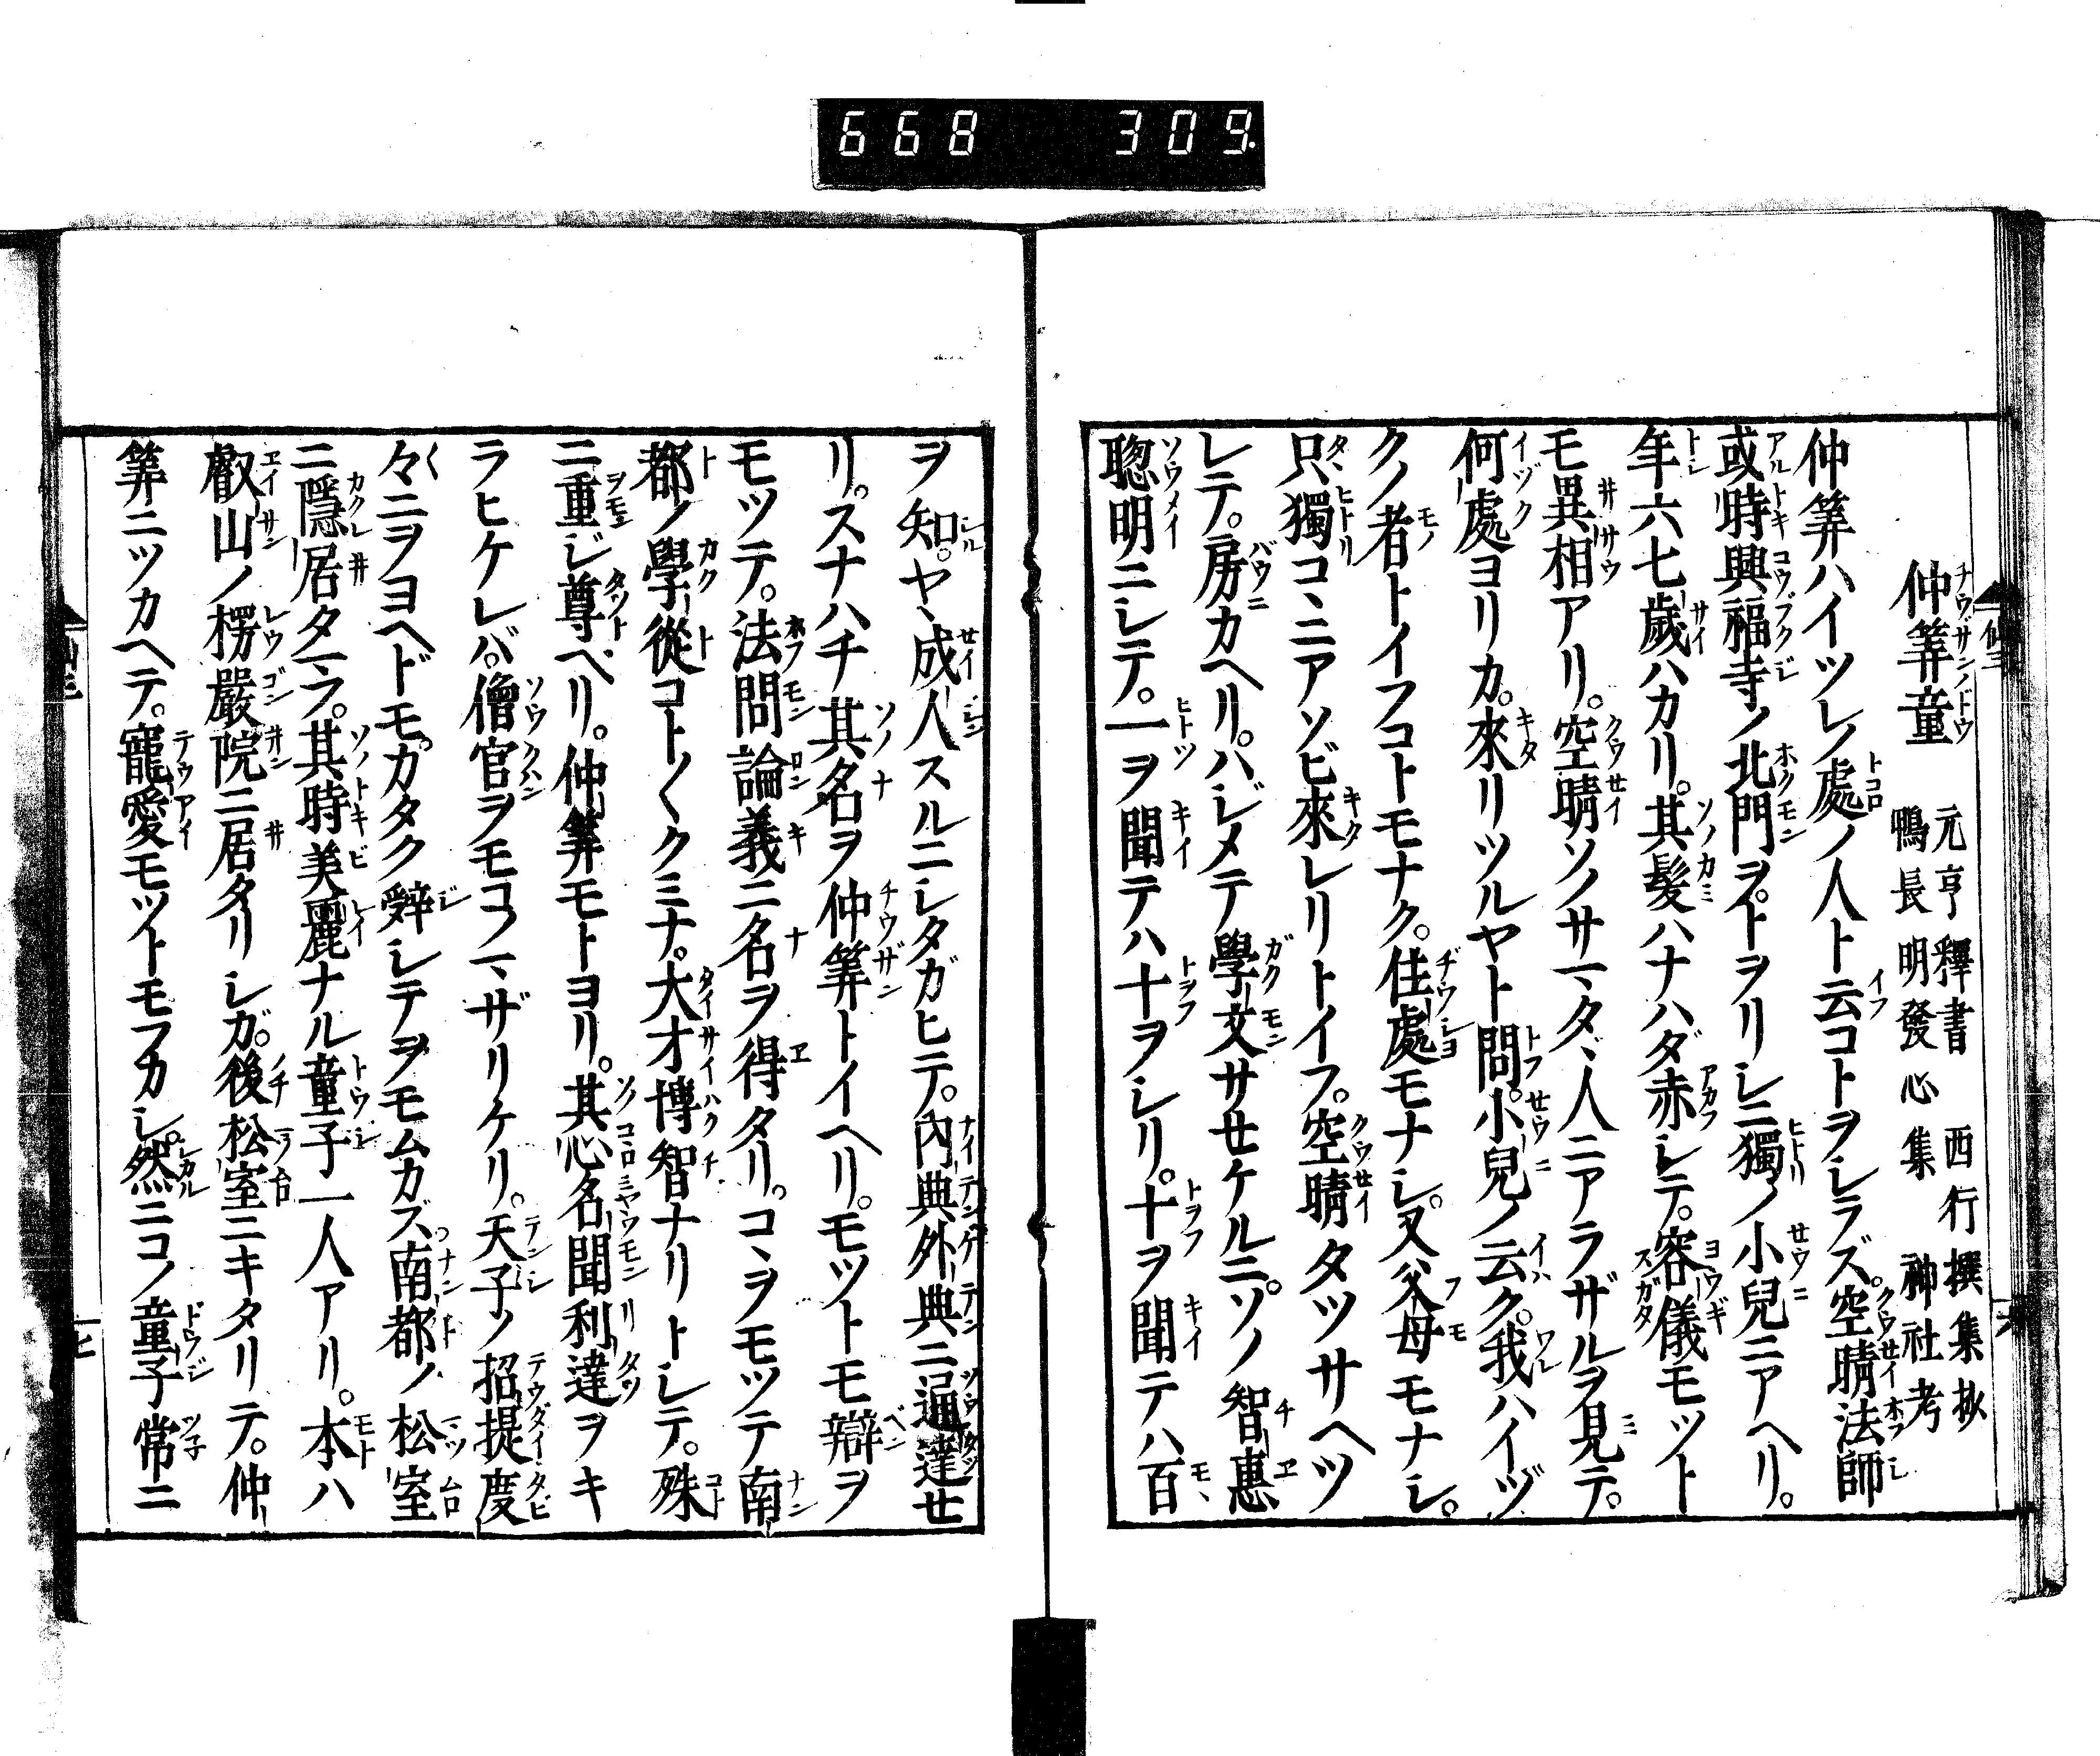 668 309
仲筭童 元亨釋書 西行撰集抄
鴨長明發心集 神社考
仲筭ハイツレノ處ノ人ト云コトヲシラズ。空晴法師
或時興福寺ノ北門ヲトヲリシニ獨ノ小兒ニアヘリ。
年六七歲ハカリ。其髮ハナハダ赤シテ。容儀モツト
モ異相アリ。空晴ソノサマタヾ人ニアラザルヲ見テ。
何處ヨリカ。來リツルヤト問。小兒ノ云ク。我ハイヅ
クノ者トイフコトモナク。住處モナシ。又父母モナシ。
只獨コヽニアソビ來レリトイフ。空晴タツサヘツ
レテ。房カヘリ。ハジメテ學文サセケルニ。ソノ智惠
聰明ニシテ。一ヲ聞テハ十ヲシリ。十ヲ聞テハ百
ヲ知。ヤヽ成人スルニシタガヒテ。內典外典ニ通達セ
リ。スナハチ其名ヲ仲筭トイヘリ。モツトモ辯ヲ
モツテ。法問論義ニ名ヲ得タリ。コヽヲモツテ南
都ノ學從コト〱クミナ。大才博智ナリトシテ。殊
ニ重ジ尊ベリ。仲筭モトヨリ。其心名聞利達ヲキ
ラヒケレバ。僧官ヲモコノマザリケリ。天子ノ招提度
々ニヲヨヘドモ。カタク辭シテヲモムカズ南都ノ松室
ニ隱居タマフ。其時美麗ナル童子一人アリ。本ハ
叡山ノ楞嚴院ニ居タリシガ。後松室ニキタリテ。仲
筭ニツカヘテ。寵愛モツトモフカシ。然ニコノ童子常ニ